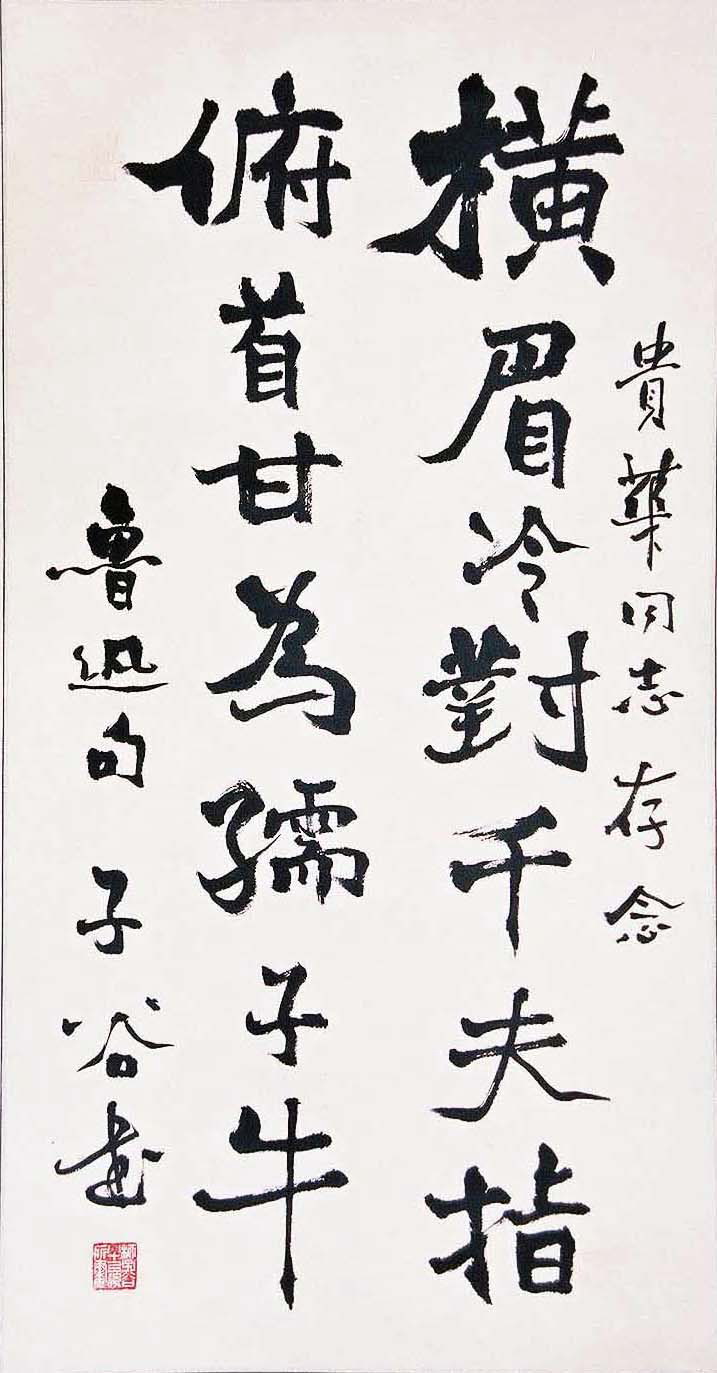 貴華同志存念
橫眉冷對千夫指
俯首甘為孺子牛
魯迅句 子谷書